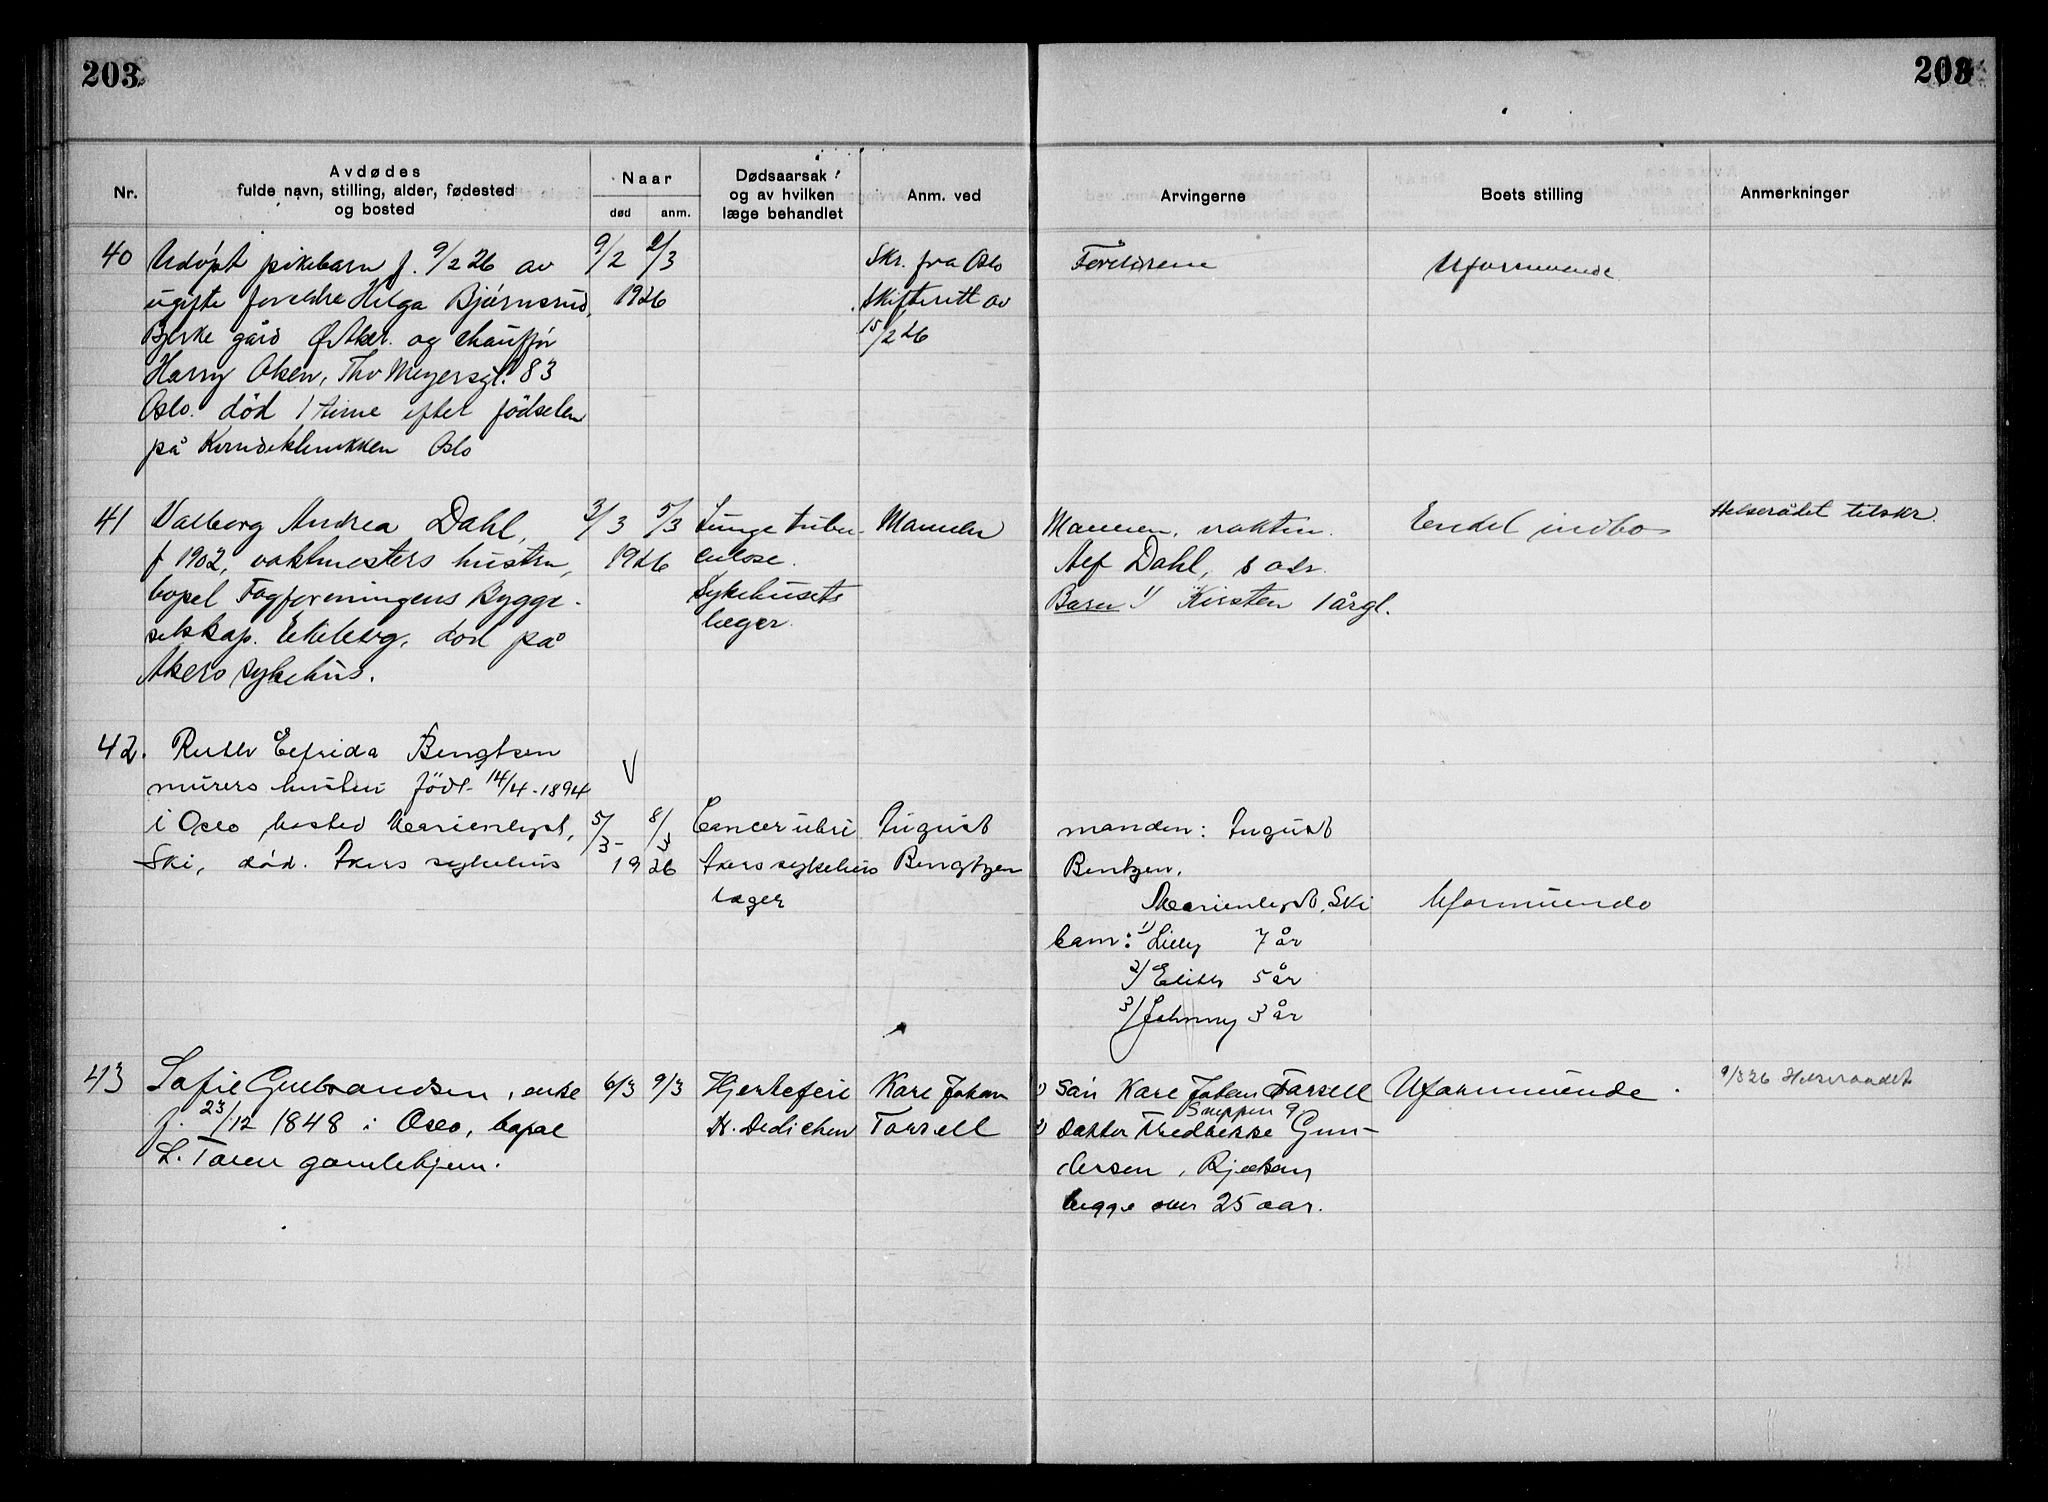 203
203
Nr.
Avdødes
fulde navn, stilling, alder, fødested
og bosted
Naar
død
anm.
Dødsaarsak
og av hvilken
læge behandlet
Anm. ved
Arvingerne
Boets stilling
Anmerkninger
40
Udöpt pikebarn f. 9/2 26 av
ugifte foreldre Helga Bjørnsrud,
Bjerke gård Ø. Aker. og chauffør
Harry Olsen, Thv Meyersgt. 83
Oslo. död 1 time efter födselen
på Kvindeklinikken Oslo
9/2 2/3
1926
Skr. fra Oslo
skifterett av
15/2 26
Foreldrene
Uformuende
41
Valborg Andrea Dahl,
f 1902, vaktmesters hustru,
bopel Fagforeningens Bygge-
selskap. Ekeberg, död på
Akers sykehus.
3/3 5/3
1926
Lunge tuber-
culose.
Sykehusets
læger.
Mannen
Mannen, vaktm.
Alf Dahl, s adr.
Barn 1) Kirsten 1 årgl.
Endel indbo
Helserådet tilskr.
42.
Ruth Elfrida Bengtsen
murers hustru född 14/4-1894
i Oslo, bosted Marienlyst,
Ski, död. Akers sykehus
5/3- 8/3
1926
Cancer uteri
Akers sykehus
læger
August
Bengtzen
manden: August
Bentzen,
Marienlyst, Ski
barn: 1) Lilly 7 år
2/ Edith 5 år
3/ Johnny 3 år
Uformuende
43
Sofie Gulbrandsen, enke
f. 23/12 1848 i Oslo, bopæl
L. Tøien gamlehjem.
6/3 9/3
Hjertefeil
H. Dedichen
Karl Johan
Torsell
1) Sön Karl Johan Torsell
2) Datter Fredrikke Gun-
dersen, Rjukan
begge over 25 aar.
Uformuende.
9/3 26 Helseraadet